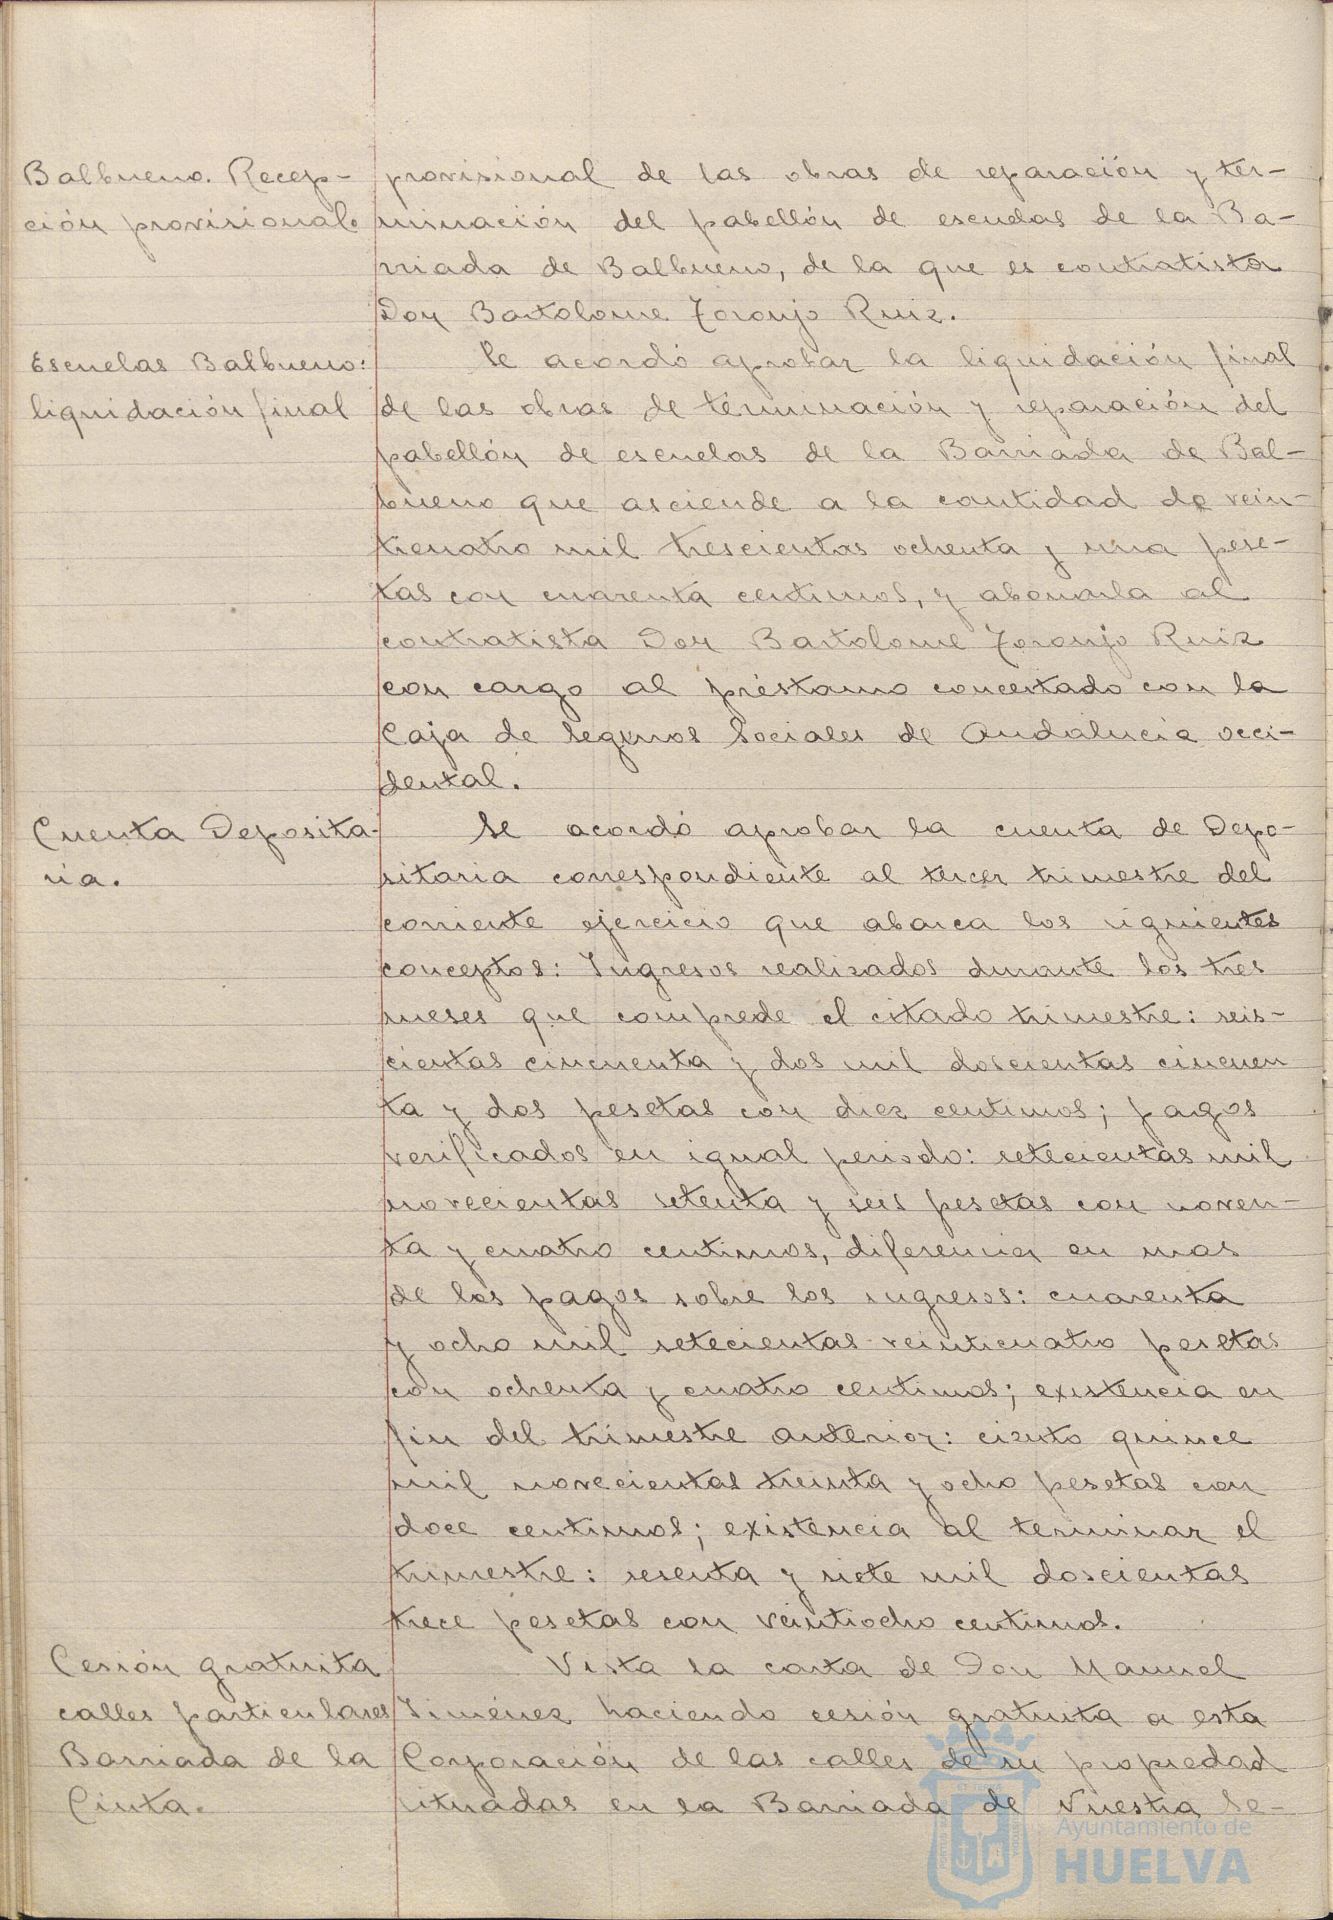 Balbueno. Recep-
ción provisional.
provisional de las obras de reparación y ter-
minación del pabellón de escuelas de la Ba-
rriada de Balbueno, de la que es contratista
Don Bartolome Toronjo Ruiz.
Escuelas Balbueno:
liquidación final
Se acordó aprobar la liquidación final
de las obras de términación y reparación del
pabellón de escuelas de la Barriada de Bal-
bueno que asciende a la cantidad de vein-
ticuatro mil trescientas ochenta y una pese-
tas con cuarenta centimos, y abonarla al
contratista Don Bartolome Toronjo Ruiz
con cargo al préstamo concertado con la
Caja de Seguros Sociales de Andalucia occi-
dental.
Cuenta Deposita-
ria.
Se acordó aprobar la cuenta de Depo-
sitaria correspondiente al tercer trimestre del
corriente ejercicio que abarca los siguientes
conceptos: Ingresos realizados durante los tres
meses que comprede el citado trimestre: seis-
cientas cincuenta y dos mil doscientas cincuen
ta y dos pesetas con diez centimos; pagos
verificados en igual periodo: setecientas mil
novecientas setenta y seis pesetas con noven-
ta y cuatro centimos, diferencia en mas
de los pagos sobre los ingresos: cuarenta
y ocho mil setecientas veinticuatro pesetas
con ochenta y cuatro centimos; existencia en
fin del trimestre anterior: ciento quince
mil novecientas treinta y ocho pesetas con
doce centimos; existencia al terminar el
trimestre: sesenta y siete mil doscientas
trece pesetas con veintiocho centimos.
Cesión gratuita
calles particulares
Barriada de la
Cinta.
Vista la carta de Don Manuel
Jiménez haciendo cesión gratuita a esta
Corporación de las calles de su propiedad
situadas en la Barriada de Nuestra Se-
Ayuntamiento de
HUELVA